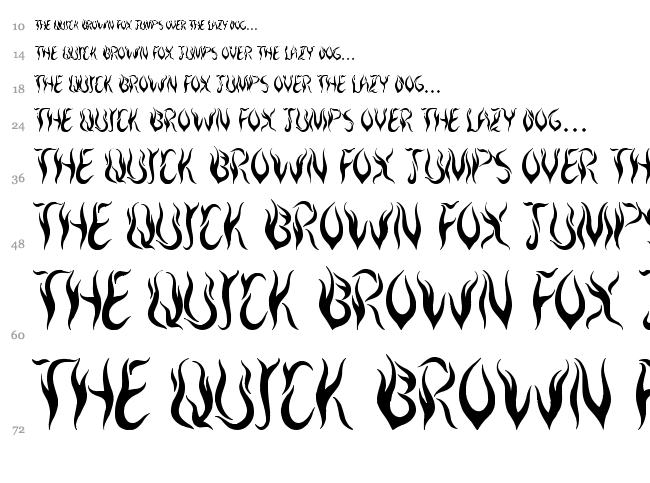 10 THE QUICK BROWN FOX JUMPS OVER THE LAZY DOG...
14 THE QUICK BROWN FOX JUMPS OVER THE LAZY DOG...
18 THE QUICK BROWN FOX JUMPS OVER THE LAZY DOG...
24 THE QUICK BROWN FOX JUMPS OVER THE LAZY DOG...
36 THE QUICK BROWN FOX JUMPS OVER TH
48 THE QUICK BROWN FOX JUMP
60 THE QUICK BROWN FOX
72 THE QUICK BROWN